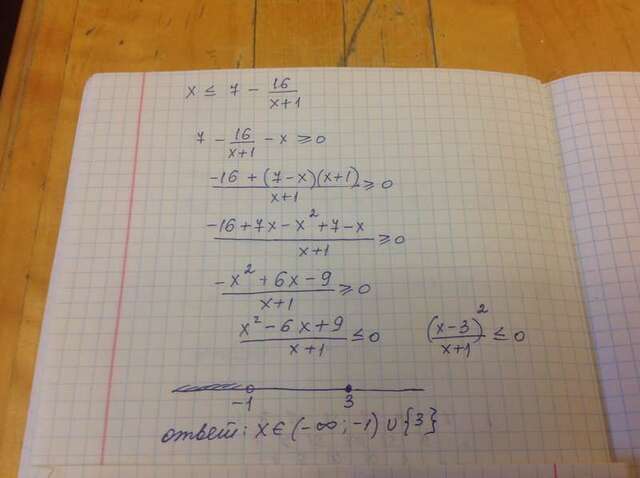 x ≤ 7 - 16/(x+1)
7 - 16/(x+1) - x ≥ 0
(-16 + (7-x)(x+1))/(x+1) ≥ 0
(-16+7x-x²+7-x)/(x+1) ≥ 0
(-x²+6x-9)/(x+1) ≥ 0
(x²-6x+9)/(x+1) ≤ 0 (x-3)²/(x+1) ≤ 0
-1 3
ответ: x∈(-∞;-1)∪{3}